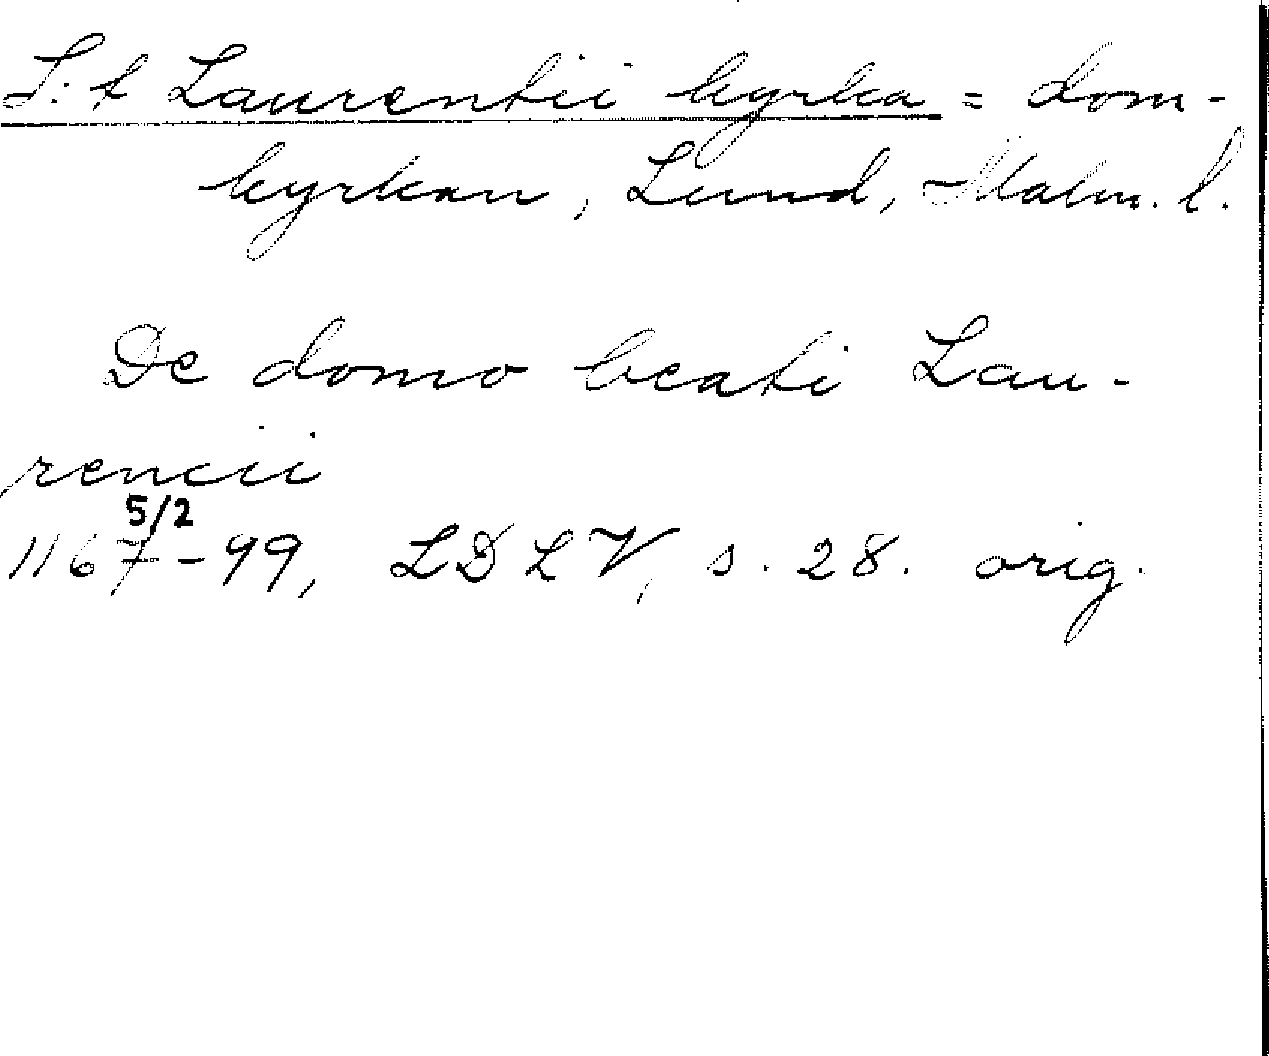 S:t Laurentii kyrka = dom-
kyrkan, Lund, Malm. l.
De domo beati Lau-
rencii
5/2
1167-99, LDLV, s. 28. orig.